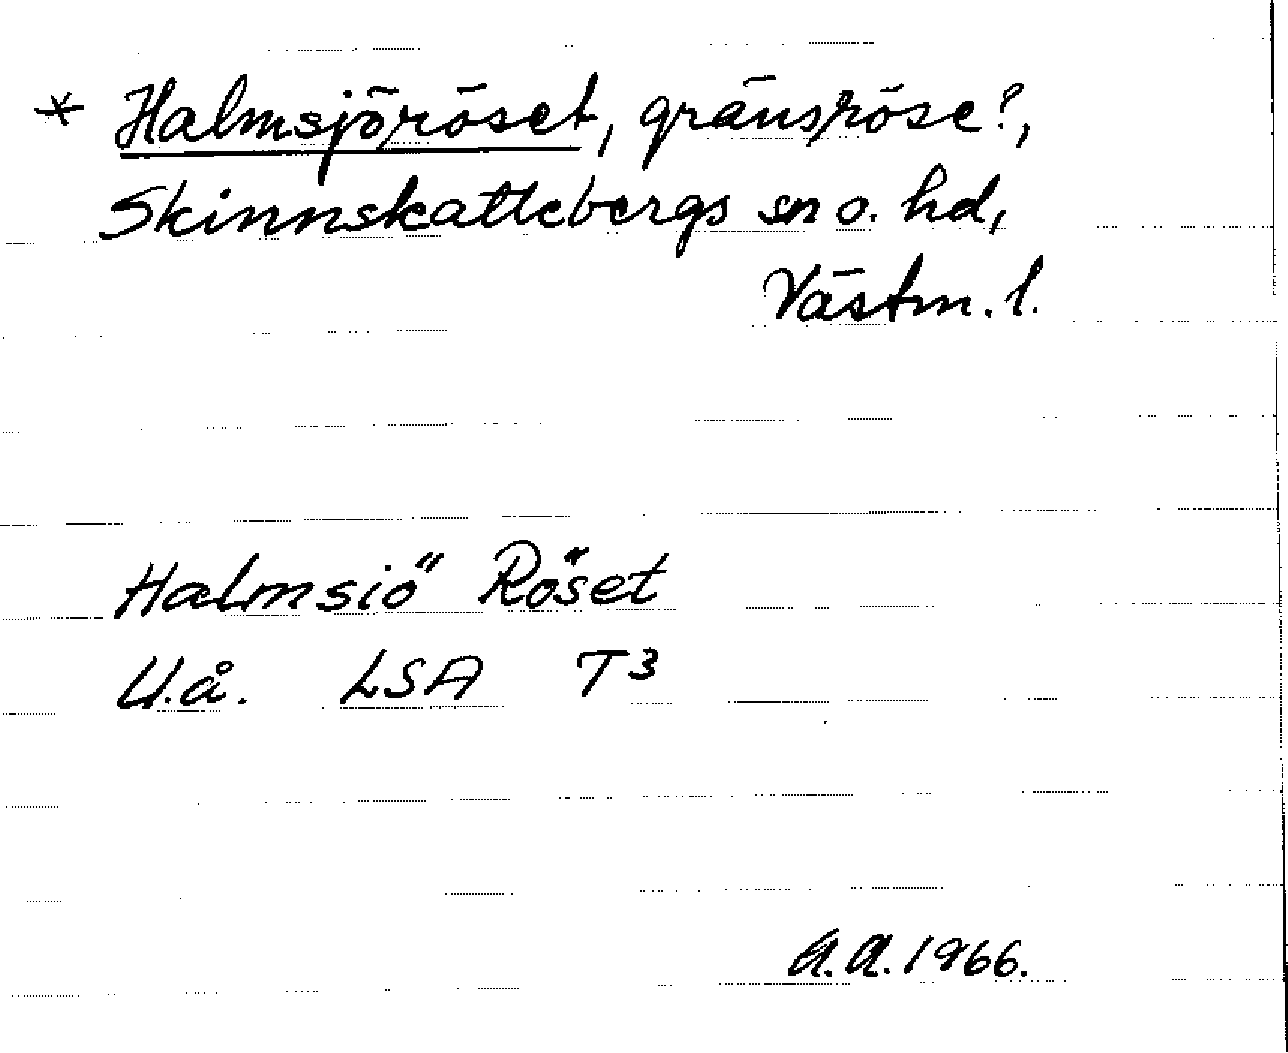 * Halmsjöröset, gränsröse?,
Skinnskattebergs sn o. hd,
Västm. l.
Halmsiö Röset
U.å. LSA T3
A.A. 1966.